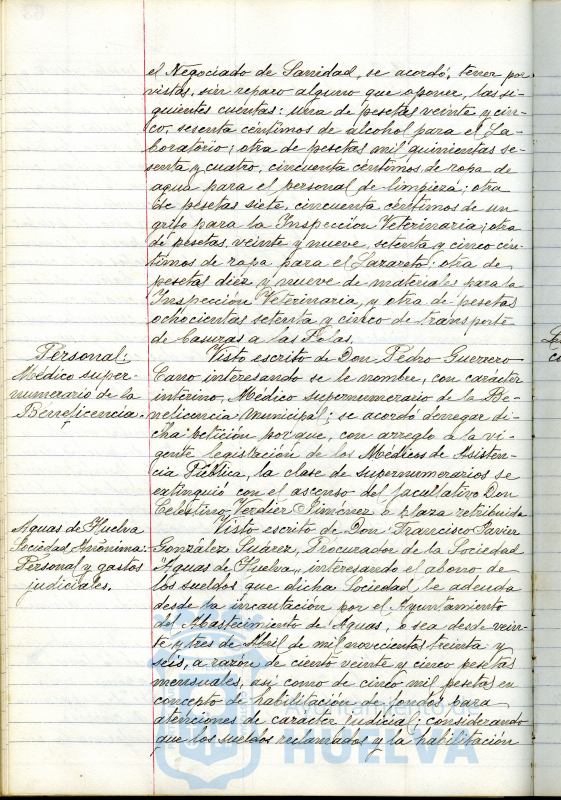 el Negociado de Sanidad, se acordó, tener por
vistas, sin reparo alguno que oponer, las si-
guientes cuentas: una de pesetas veinte y cin-
co, sesenta céntimos de alcohol para el La-
boratorio; otra de pesetas mil quinientas se-
senta y cuatro, cincuenta céntimos de ropa de
agua para el personal de limpieza; otra
de pesetas siete, cincuenta céntimos de un
grifo para la Inspección Veterinaria; otra
de pesetas, veinte y nueve, setenta y cinco cén-
timos de ropa para el Lazareto; otra de
pesetas diez y nueve de materiales para la
Inspección Veterinaria, y otra de pesetas
ochocientas setenta y cinco de transporte
de basuras a las Polas.
Personal:
Médico super-
numerario de la
Beneficencia.
Visto escrito de Don Pedro Guerrero
Cano interesando se le nombre, con carácter
interino, Médico supernumerario de la Be-
neficencia Municipal; se acordó denegar di-
cha petición porque, con arreglo a la vi-
gente legislación de los Médicos de Asisten-
cia Pública, la clase de supernumerarios se
extinguió con el ascenso del facultativo Don
Celestino Verdier Jiménez a plaza retribuida
Aguas de Huelva
Sociedad Anónima:
Personal y gastos
judiciales.
Visto escrito de Don Francisco Javier
González Suárez, Procurador de la Sociedad
Aguas de Huelva, interesando el abono de
los sueldos que dicha Sociedad le adeuda
desde la incautación por el Ayuntamiento
del Abastecimiento de Aguas, o sea desde vein-
te y tres de Abril de mil novecientos treinta y
seis, a razón de ciento veinte y cinco pesetas
mensuales, así como de cinco mil pesetas en
concepto de habilitación de fondos para
atenciones de carácter judicial; considerando
que los sueldos reclamados y la habilitación
HUELVA